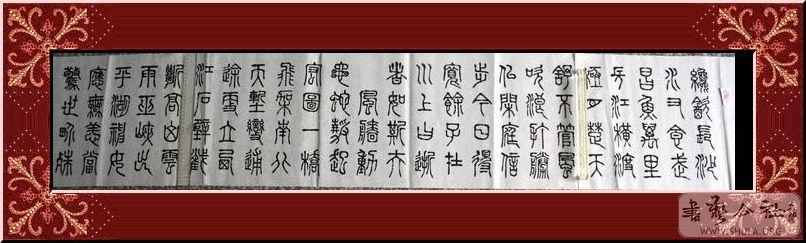 纔飲長沙
水又食武
昌魚萬里
長江橫渡
極目楚天
舒不管風
吹浪打勝
似閒庭信
步今日得
寬餘子在
川上曰逝
者如斯夫
風檣動
龜蛇靜起
宏圖一橋
飛架南北
天塹變通
途更立西
江石壁截
斷高山雲
雨巫峽出
平湖神女
應無恙當
驚世界殊
書藝公社
WWW.SHUFA.ORG